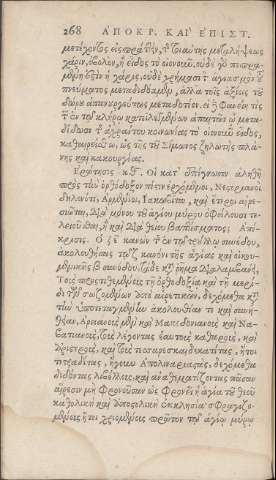 268 ΑΠΟΚΡ. ΚΑΙ ΕΠΙΣΤ.
μετέχοντος εἰσπράττειν, τῆς τοιαύτης μεταλήψεως
χάριν, ὀβολὸν, ἢ εἶδος τὸ οἱονοῦν. οὐδὲ γὸ πεπρα-
μένη ἐστὶν ἡ χάρις, οὐδὲ χρήμασι τ ἁγιασμὸν τ
πνεύματος μεταδίδομεν, ἀλλὰ τοῖς ἀξίοις τ
δώρου ἀπανουργεύτως μεταδοτέον. εἰ ἢ φανείη τὶς
τ ἐν τῷ κλήρῳ καταλεγομένων ἀπαιτῶν ᾧ μετα-
δίδωσι τ ἀχράντου κοινωνίας τὸ οἱονοῦν εἶδος,
καθαιρείσθω, ὡς τῆς τ Σίμωνος ζηλωτὴς πλά-
νης καὶ κακουργίας.
Ἐρώτησις κθ. Οἱ κατ᾽ ἐπίγνωσιν ἀληθῆ
πρὸς τὴν ὀρθόδοξον πίστιν ἐρχόμενοι, Νεστοριανοὶ
δηλονότι, Ἀρμένιοι, Ἰακωβῖται, καὶ ἕτεροι αἱρε-
σιῶται, διὰ μόνου τ ἁγίου μύρου ὀφείλουσι τε-
λειοῦσθαι, ἢ καὶ διὰ θείου βαπτίσματος; Ἀπό-
κρισις. Ὁ ζ κανὼν τ ἐν τῷ τρούλλῳ συνόδου,
ἀκολουθήσας τῷ ζ κανόνι τῆς ἁγίας καὶ οἰκου-
μενικῆς β συνόδου, ὧδε κτ ῥῆμα διαλαμβάνει,
Τοὺς προστιθεμένους τῇ ὀρθοδοξίᾳ καὶ τῇ μερί-
δι τ σωζομένων ἀπὸ αἱρετικῶν, δεχόμεθα κτ
τὴν ὑποτεταγμένην ἀκολουθίαν τε καὶ συνή-
θειαν, Ἀρειανοὺς μὲν καὶ Μακεδονιανοὺς καὶ Ναυ-
ατιανοὺς, τοὺς λέγοντας ἑαυτοὺς καθαροὺς, καὶ
ἀριστεροὺς, καὶ τοὺς τεσσαρεσκαιδεκατίτας, ἤτοι
τετραδίτας, ἢ γοῦν Ἀπολιναρίστας, δεχόμεθα
διδόντας λιβέλλους, καὶ ἀναθεματίζοντας πᾶσαν
αἵρεσιν μὴ φρονοῦσαν ὡς φρονεῖ ἡ ἁγία τ Θεοῦ
καθολικὴ καὶ ἀποστολικὴ ἐκκλησία· σφραγιζο-
μένους ἤτοι χριομένους πρῶτον τῷ ἁγίῳ μύρῳ